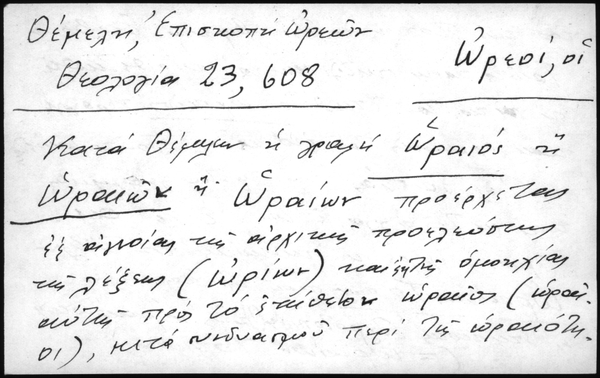 Θέμελη, Ἐπισκοπή Ὠρεῶν
Ὠρεοί, οἱ
Θεολογία 23, 608
Κατά Θέμελην ἡ γραφή Ὡραιός ἤ
Ὡραιῶν ἤ Ὡραίων προέρχεται
ἐξ ἀγνοίας τῆς ἀρχικῆς προελεύσεως
τῆς λέξεως (ὠρίων) καί τῆς ὁμοηχίας
αὐτῆς πρός τό ἐπίθετον ὡραῖος (ὡραῖ-
οι), μετά συνδυασμοῦ περί τῆς ὡραιότη-